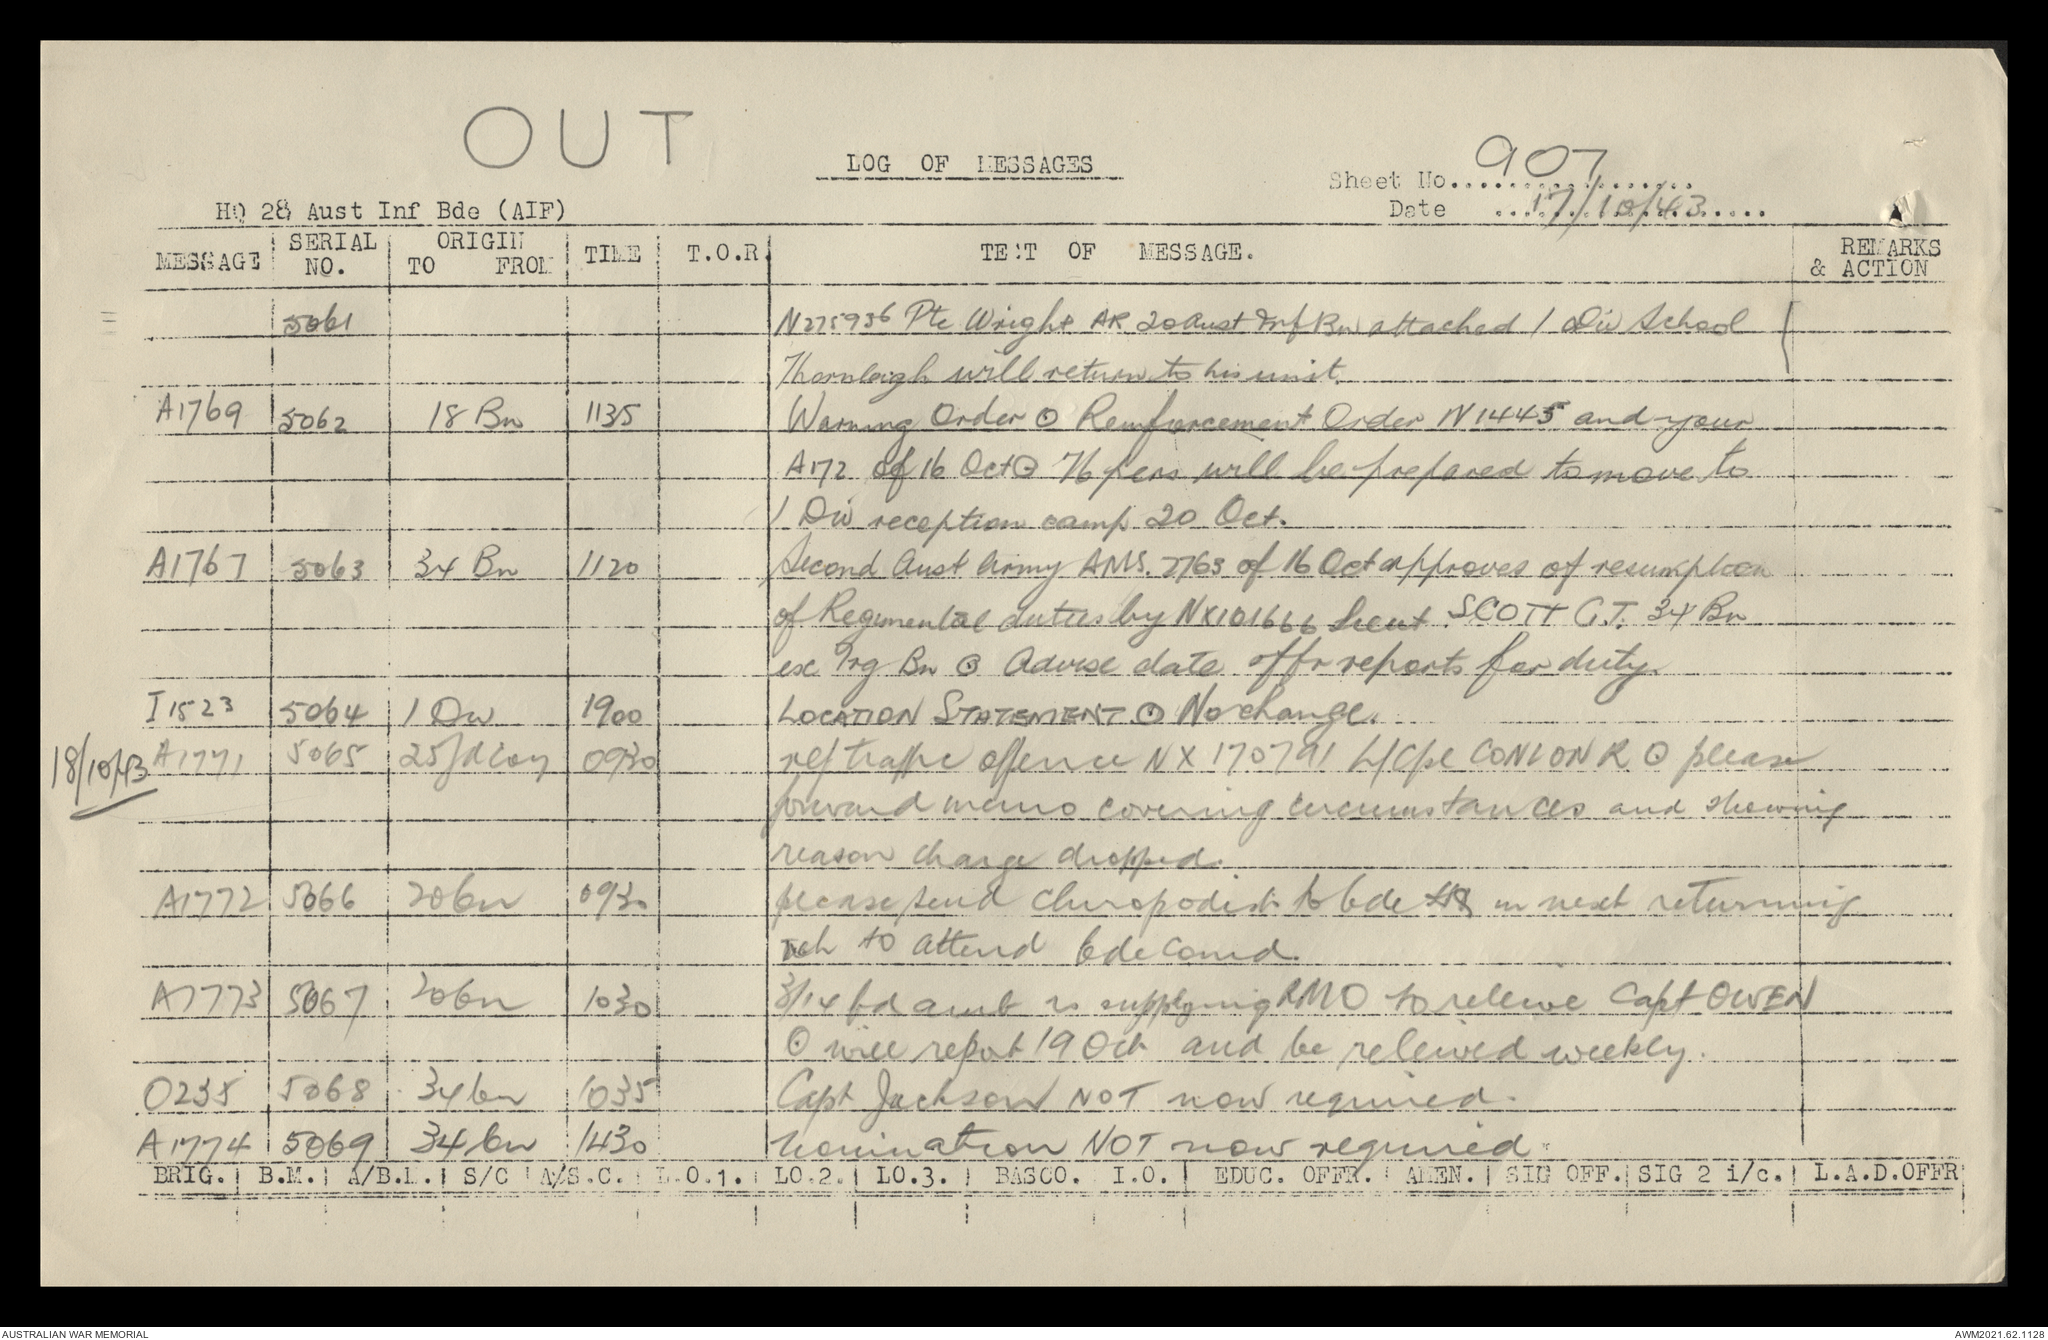 OUT
LOG OF MESSAGES
Sheet No. 907
Date 17/10/43
HQ 28 Aust Inf Bde (AIF)
MESSAGE SERIAL NO. ORIGIN TO FROM TIME T.O.R. TEXT OF MESSAGE. REMARKS & ACTION
5061 N275936 Pte Wright AR 20 Aust Inf Bn attached 1 Div School
Thornleigh will return to his unit.
A1769 5062 18 Bn 1135 Warning Order ⊙ Reinforcement Order N1445 and your
A172 of 16 Oct ⊙ 76 pers will be prepared to move to
1 Div reception camp 20 Oct.
A1767 5063 34 Bn 1120 Second Aust Army AMS. 2763 of 16 Oct approves of resumption
of Regimental duties by NX101666 Lieut SCOTT G.T. 34 Bn
ex Trg Bn ⊙ Advise date offr reports for duty.
I1523 5064 1 Div 1900 LOCATION STATEMENT ⊙ No change.
18/10/43 A1771 5065 25 fd coy 0930 ref traffic offence NX 170791 L/Cpl CONLON R ⊙ please
forward memo covering circumstances and shewing
reason charge dropped.
A1772 5066 20 bn 0930 please send chiropodist to bde in next returning
veh to attend bde comd.
A1773 5067 20 bn 1030 3/14 fd amb is supplying RMO to releive Capt OWEN
⊙ will report 19 Oct and be releived weekly.
O235 5068 34 bn 1035 Capt Jackson NOT now required.
A1774 5069 34 bn 1430 nomination NOT now required.
BRIG. B.M. A/B.M. S/C A/S.C. L.O.1. LO.2. LO.3. BASCO. I.O. EDUC. OFFR. AMEN. SIG OFF. SIG 2 i/c. L.A.D.OFFR
AUSTRALIAN WAR MEMORIAL
AWM2021.62.1128